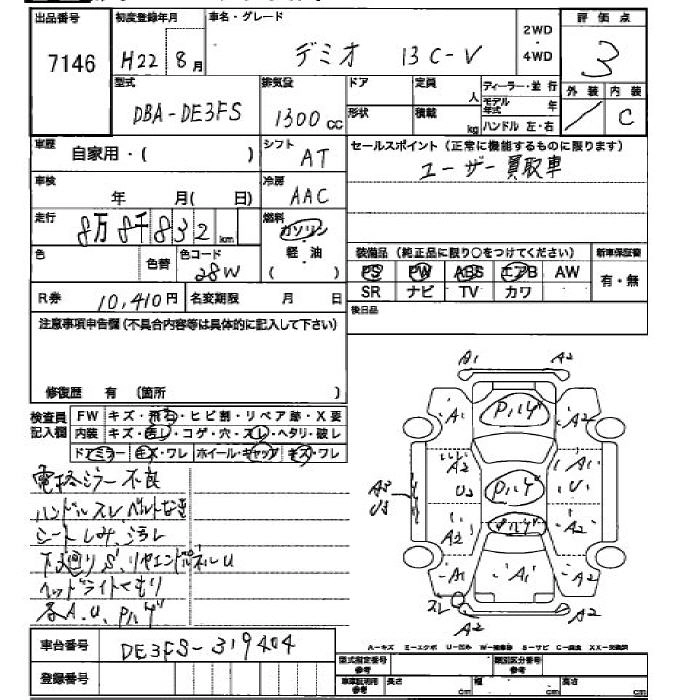 出品番号 初度登録年月 車名・グレード 2WD・4WD 評価点
7146 H22 8月 デミオ 13C-V 3
型式 排気量 ドア 定員 人 ディーラー・並行 外装 内装
DBA-DE3FS 1300cc 形状 積載 kg モデル年式 年 / C
ハンドル 左・右
車歴 自家用・( ) シフト AT セールスポイント(正常に機能するものに限ります)
ユーザー買取車
車検 年 月( 日) 冷房 AAC
走行 8万8千832km 燃料 ガソリン・軽油 ( )
色 色替 色コード 28W
装備品(純正品に限り○をつけてください) 新車保証書
PS PW ABS エアB AW 有・無
SR ナビ TV カワ
R券 10,410円 名変期限 月 日 後日品
注意事項申告欄(不具合内容等は具体的に記入して下さい)
修復歴 有 (箇所 )
検査員記入欄 FW キズ・飛石・ヒビ割・リペア跡・X要
内装 キズ・汚レ・コゲ・穴・スレ・ヘタリ・破レ
ドアミラー キズ・ワレ ホイール・キャップ キズ・ワレ
電格ミラー不良
ハンドルスレ、ベルト
シートしみ、汚レ
下廻りS、リヤエンドパネルU
ヘッドライトくもり
各A.U、Pハゲ
A1 A2
A1 Pハゲ A1
A2 A1
A3 U3 U3 Pハゲ U1
A2 Pハゲ A2
A1 A1 A1
ズレ A2 A2
車台番号 DE3FS-319404
登録番号
A-キズ E-エクボ U-凹み W-補修跡 S-サビ C-腐食 XX-交換済
型式指定番号 参考 類別区分番号 参考
車車証明用 参考 長さ cm 幅 cm 高さ cm